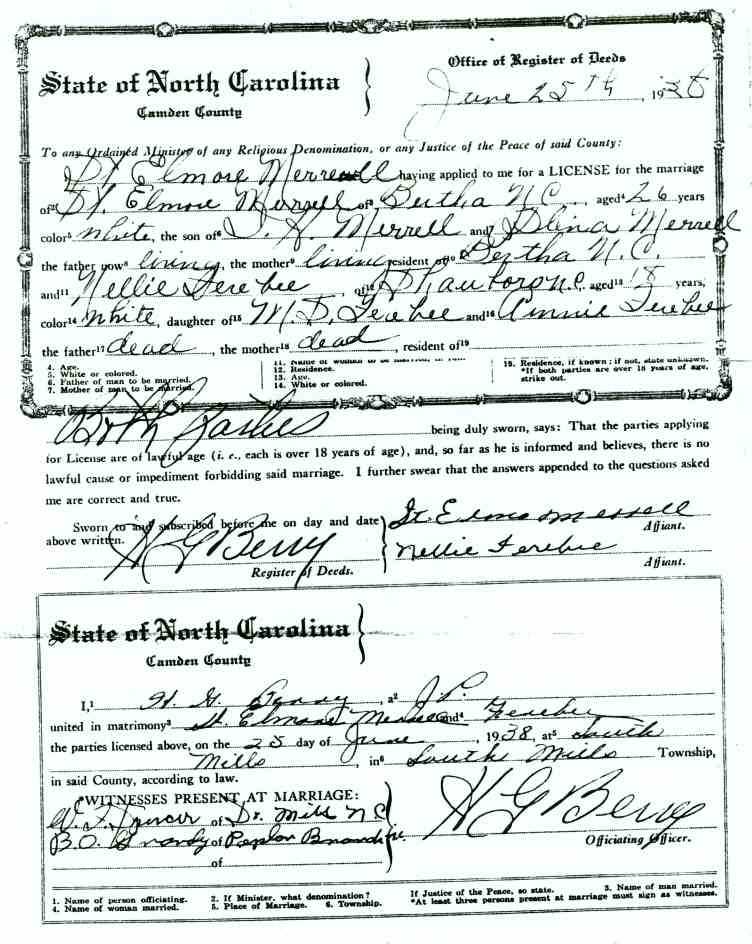 State of North Carolina
Camden County
Office of Register of Deeds
June 25th, 1938
To any Ordained Minister of any Religious Denomination, or any Justice of the Peace of said County:
St. Elmore Merrell having applied to me for a LICENSE for the marriage
of² St. Elmore Merrell of³ Bertha N.C., aged⁴ 26 years
color⁵ White, the son of⁶ Merrell and⁷ Merrell
the father now⁸ living, the mother⁹ living resident of¹⁰ Bertha N.C.
and¹¹ Nellie Ferebee, of¹² N.C. aged¹³ 18 years,
color¹⁴ White, daughter of¹⁵ M.D. Ferebee and¹⁶ Annie Ferebee
the father¹⁷ dead, the mother¹⁸ dead, resident of¹⁹
4. Age.
5. White or colored.
6. Father of man to be married.
7. Mother of man to be married.
11. Name of woman to be married, in full.
12. Residence.
13. Age.
14. White or colored.
19. Residence, if known; if not, state unknown.
*If both parties are over 18 years of age,
strike out.
Both Parties being duly sworn, says: That the parties applying
for License are of lawful age (i. e., each is over 18 years of age), and, so far as he is informed and believes, there is no
lawful cause or impediment forbidding said marriage. I further swear that the answers appended to the questions asked
me are correct and true.
Sworn to and subscribed before me on day and date
above written.
H G Berry
Register of Deeds.
St. Elmo Merrell
Affiant.
Nellie Ferebee
Affiant.
State of North Carolina
Camden County
I,¹ H. G. Berry, a² J.P.
united in matrimony³ St. Elmore Merrell and⁴ Ferebee
the parties licensed above, on the 25 day of June, 1938, at⁵ South
Mills, in⁶ South Mills Township,
in said County, according to law.
*WITNESSES PRESENT AT MARRIAGE:
W. Spencer of So. Mills N C
B.O. of Poplar Branch
of
H G Berry
Officiating Officer.
1. Name of person officiating.
4. Name of woman married.
2. If Minister, what denomination?
5. Place of Marriage. 6. Township.
If Justice of the Peace, so state. 3. Name of man married.
*At least three persons present at marriage must sign as witnesses.